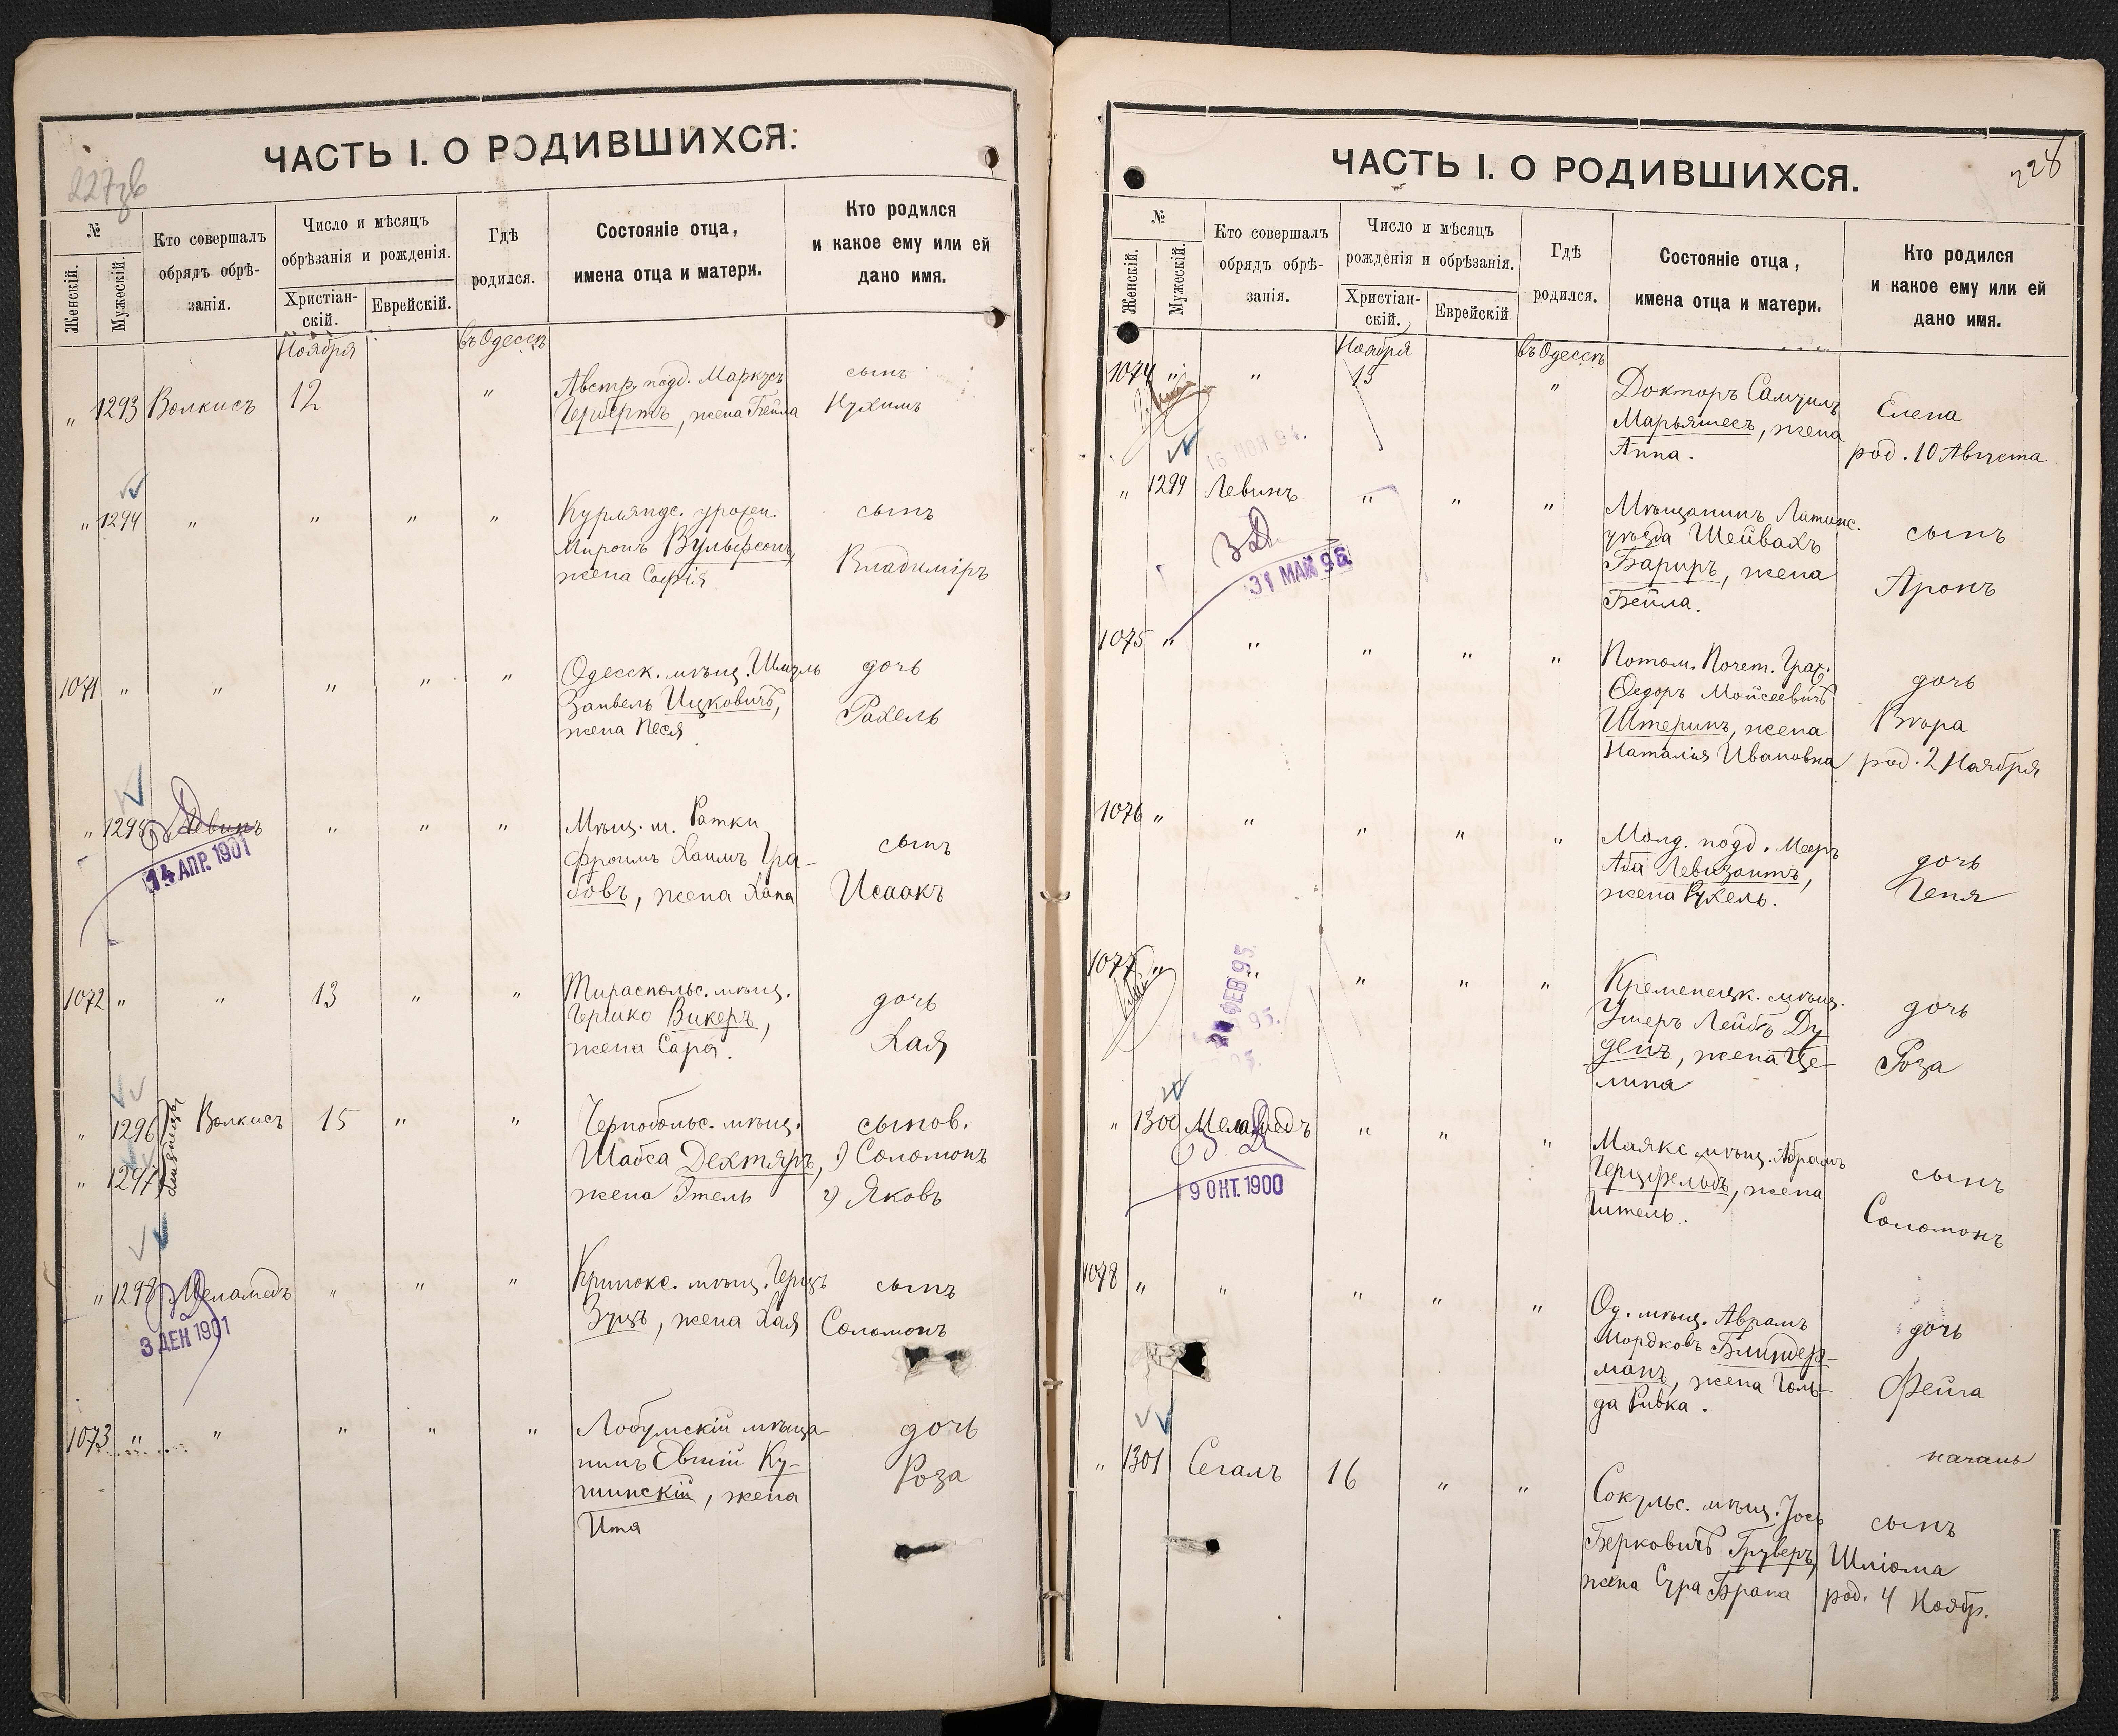 ЧАСТЬ I. О РОДИВШИХСЯ:
№
Женскій.
Мужескій.
Кто совершалъ
обрядъ обрѣ-
занія.
Число и мѣсяцъ
обрѣзанія и рожденія.
Христіан-
скій.
Еврейскій.
Гдѣ
родился.
Состояніе отца,
имена отца и матери.
Кто родился
и какое ему или ей
дано имя.
Ноября
въ Одессѣ
" 1293 Волкисъ 12 " Австр. подд. Маркусъ сынъ
Гербертъ, жена Бейла Нухимъ
" 1294 " " " " Курляндс. урожен. сынъ
Миронъ Вульфсонъ,
жена Софія Владиміръ
1071 " " " " " Одесск. мѣщ. Шмуль дочь
Занвель Ицковичъ, Рахель
жена Песя
" 1295 Левинъ " " " Мѣщ. м. Ратки
14 АПР. 1901
Фроимъ Хаимъ Гра- сынъ
бовъ, жена Хана Исаакъ
1072 " " 13 " " Тираспольс. мѣщ. дочь
Гершко Викеръ,
жена Сара. Хая
" 1296 близнецы Волкисъ 15 " " Чернобольс. мѣщ. сынов.
" 1297 Шабса Дехтяръ, 1) Соломонъ
жена Этель 2) Яковъ
" 1298 Меламедъ " " " Кринокс. мѣщ. Герцъ сынъ
3 ДЕК 1901
Зуцъ, жена Хая Соломонъ
1073 " " " " " Лобунскій мѣща- дочь
нинъ Евгній Ку-
шинскій, жена Роза
Ита
ЧАСТЬ I. О РОДИВШИХСЯ.
228
№
Женскій.
Мужескій.
Кто совершалъ
обрядъ обрѣ-
занія.
Число и мѣсяцъ
рожденія и обрѣзанія.
Христіан-
скій.
Еврейскій
Гдѣ
родился.
Состояніе отца,
имена отца и матери.
Кто родился
и какое ему или ей
дано имя.
Ноября
въ Одессѣ
1074 " " 15 " Докторъ Самуилъ
Марьяшесъ, жена Елена
Анна. род. 10 Августа
" 1299 Левинъ " " " Мѣщанинъ
31 МАЙ 96
уѣзда Шейвахъ сынъ
Бариръ, жена Аронъ
Бейла.
1075 " " " " " Потом. Почет. Граж.
Ѳедоръ Моисеевичъ дочь
Штернъ, жена Вѣра
Наталія Ивановна род. 2 Ноября
1076 " " " " " Молд. подд. Мееръ
Аба Левизонтъ, дочь
жена Рухель. Геня
1077 " " " " " Кременецк. мѣщ.
ФЕВ 95
Ушеръ Лейбъ Ду- дочь
денъ, жена Це- Роза
лина
" 1300 Меламедъ " " " Маякс. мѣщ. Абрамъ
9 ОКТ. 1900
Герцфельдъ, жена сынъ
Гитель. Соломонъ
1078 " " " " " Од. мѣщ. Аврамъ
Мордковъ Блиндер- дочь
манъ, жена Голь- Фейга
да Ривка.
" 1301 Сегалъ 16 " " Сокульс. мѣщ. Іось сынъ
Берковичъ Груверъ, Шліома
жена Сура Брана род. 4 Ноябр.